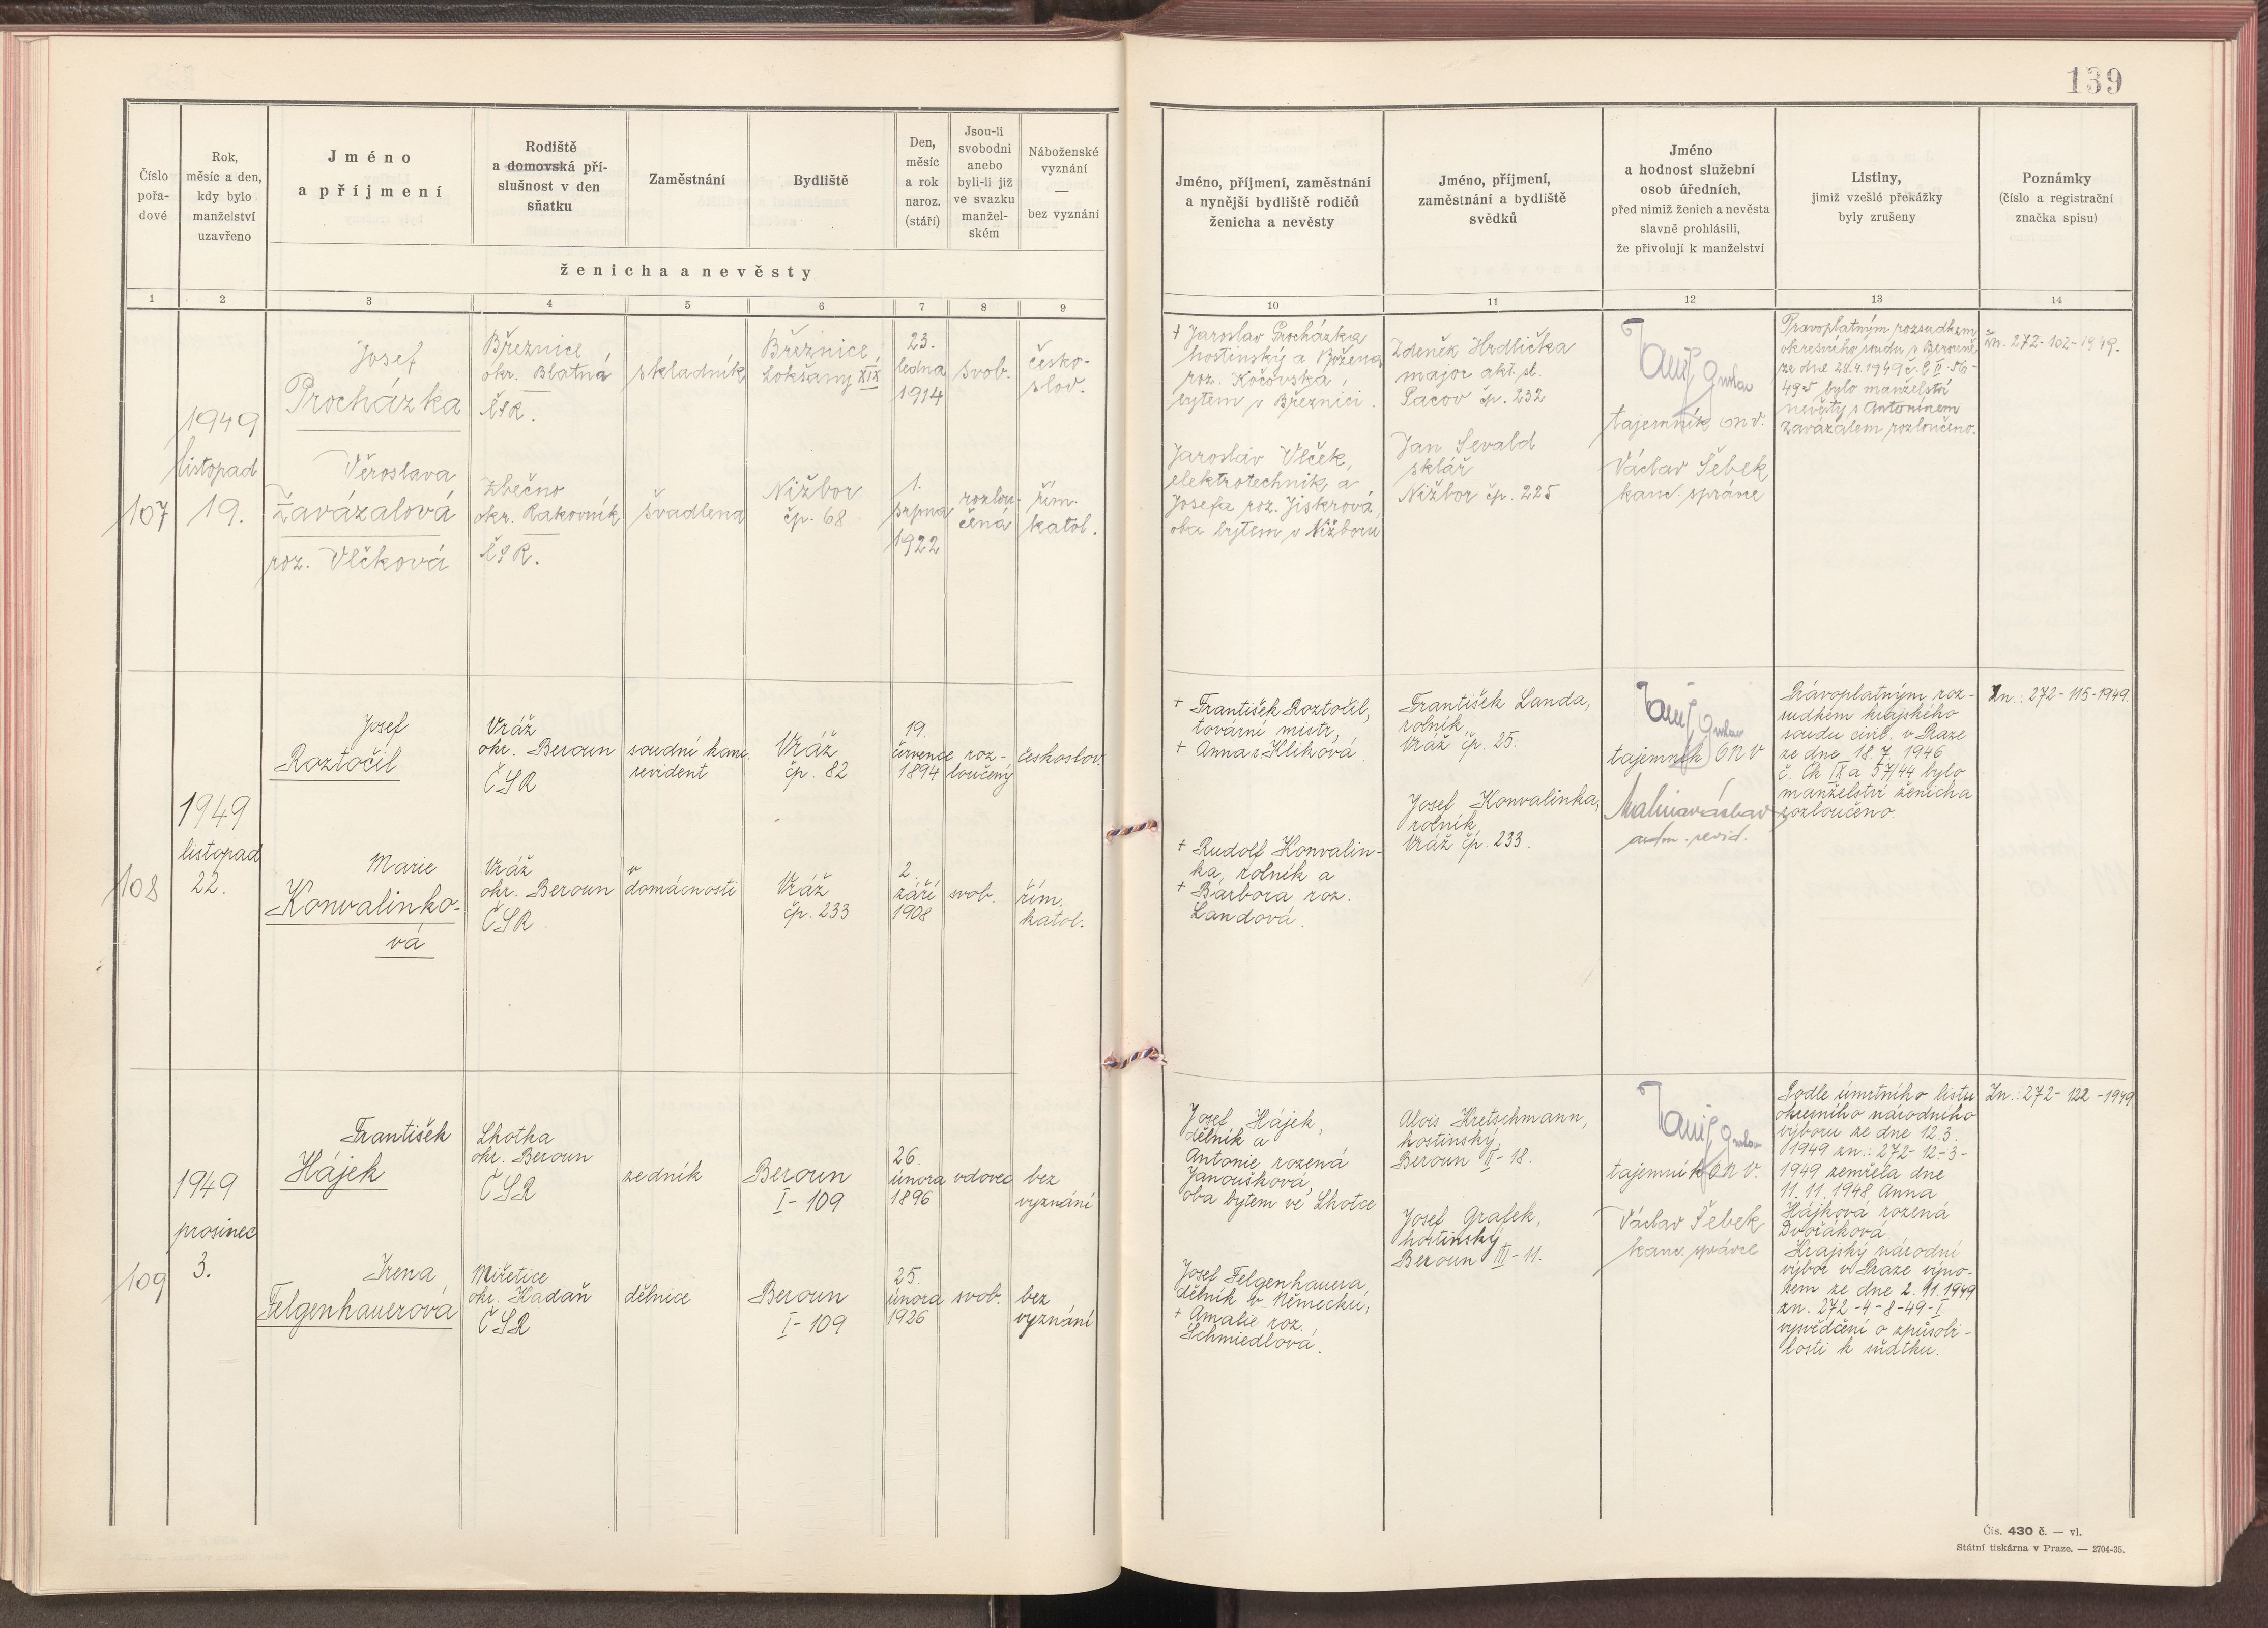 139
Číslo
pořa-
dové
Rok,
měsíc a den,
kdy bylo
manželství
uzavřeno
Jméno
a příjmení
Rodiště
a domovská pří-
slušnost v den
sňatku
Zaměstnání
Bydliště
Den,
měsíc
a rok
naroz.
(stáří)
Jsou-li
svobodni
anebo
byli-li již
ve svazku
manžel-
ském
Náboženské
vyznání
—
bez vyznání
ženicha a nevěsty
Jméno, příjmení, zaměstnání
a nynější bydliště rodičů
ženicha a nevěsty
Jméno, příjmení,
zaměstnání a bydliště
svědků
Jméno
a hodnost služební
osob úředních,
před nimiž ženich a nevěsta
slavně prohlásili,
že přivolují k manželství
Listiny,
jimiž vzešlé překážky
byly zrušeny
Poznámky
(číslo a registrační
značka spisu)
1 2 3 4 5 6 7 8 9 10 11 12 13 14
107
1949
listopad
19.
Josef
Procházka
Březnice
okr. Blatná
ČSR.
skladník
Březnice,
Lokšany XIX
23.
ledna
1914
svob.
česko-
slov.
Věroslava
Zavázalová
roz. Vlčková
Zbečno
okr. Rakovník
ČSR.
švadlena
Nižbor
čp. 68
1.
srpna
1922
rozlou-
čená
řím.
katol.
† Jaroslav Procházka
hostinský a Božena
roz. Kočovská,
bytem v Březnici.
Jaroslav Vlček,
elektrotechnik a
Josefa roz. Jiskrová,
oba bytem v Nižboru
Zdeněk Hrdlička
major akt. sl.
Pacov čp. 232
Jan Sevald
sklář
Nižbor čp. 225
tajemník ONV.
Václav Šebek
kanc. správce
Pravoplatným rozsudkem
okresního soudu v Berouně
ze dne 28.4.1949 č. C II-56-
49-5 bylo manželství
nevěsty s Antonínem
Zavázalem rozloučeno.
Zn. 272-102-1949.
108
1949
listopad
22.
Josef
Roztočil
Vráž
okr. Beroun
ČSR
soudní kanc.
revident
Vráž
čp. 82
19.
července
1894
roz-
loučený
českoslov.
Marie
Konvalinko-
vá
Vráž
okr. Beroun
ČSR
v
domácnosti
Vráž
čp. 233
2.
září
1908
svob.
řím.
katol.
† František Roztočil,
tovární mistr,
† Anna r. Klíková
† Rudolf Konvalin-
ka, rolník a
† Barbora roz.
Landová.
František Landa,
rolník,
Vráž čp. 25.
Josef Konvalinka,
rolník,
Vráž čp. 233.
tajemník ONV
adm. revid.
Právoplatným roz-
sudkem krajského
soudu civil. v Praze
ze dne 18.7.1946
č. Ck IX a 57/44 bylo
manželství ženicha
rozloučeno.
Zn.: 272-115-1949.
109
1949
prosinec
3.
František
Hájek
Lhotka
okr. Beroun
ČSR
zedník
Beroun
I-109
26.
února
1896
vdovec
bez
vyznání
Irena
Felgenhauerová
Miřetice
okr. Kadaň
ČSR
dělnice
Beroun
I-109
25.
února
1926
svob.
bez
vyznání
Josef Hájek,
dělník a
Antonie rozená
Janoušková,
oba bytem ve Lhotce
Josef Felgenhauera,
dělník v Německu,
† Amalie roz.
Schmiedlová.
Alois Kretschmann,
hostinský,
Beroun II-18.
Josef Grafek,
hostinský,
Beroun III-11.
tajemník ONV.
Václav Šebek
kanc. správce
Podle úmrtního listu
okresního národního
výboru ze dne 12.3.
1949 zn.: 272-12-3-
1949 zemřela dne
11.11.1948 Anna
Hájková rozená
Dvořáková.
Krajský národní
výbor v Praze výno-
sem ze dne 2.11.1949
zn. 272-4-8-49-I
vysvědčení o způsobi-
losti k sňatku.
Zn.: 272-122-1949
Čís. 430 č. — vl.
Státní tiskárna v Praze. — 2704-35.